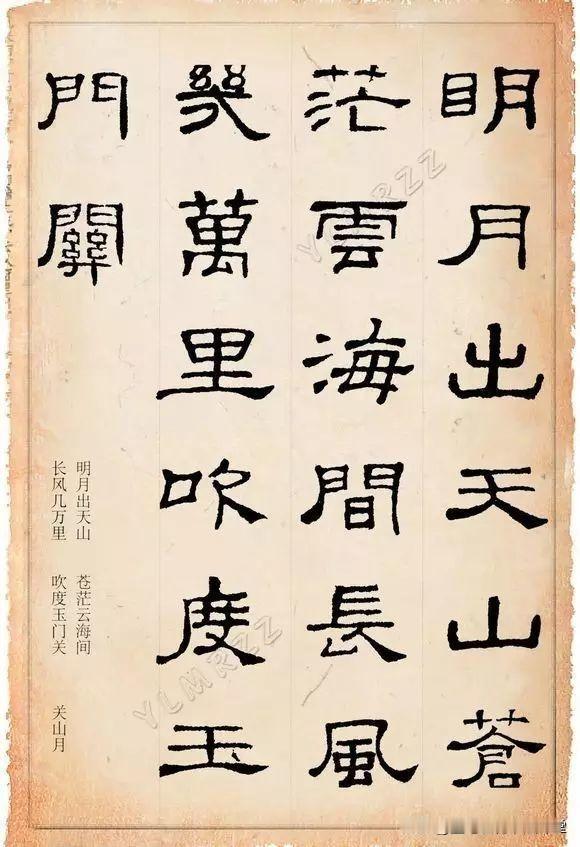 明月出天山蒼
茫雲海間長風
幾萬里吹度玉
門關
明月出天山 苍茫云海间
长风几万里 吹度玉门关
关山月
YLMRZZ
YLMRZZ